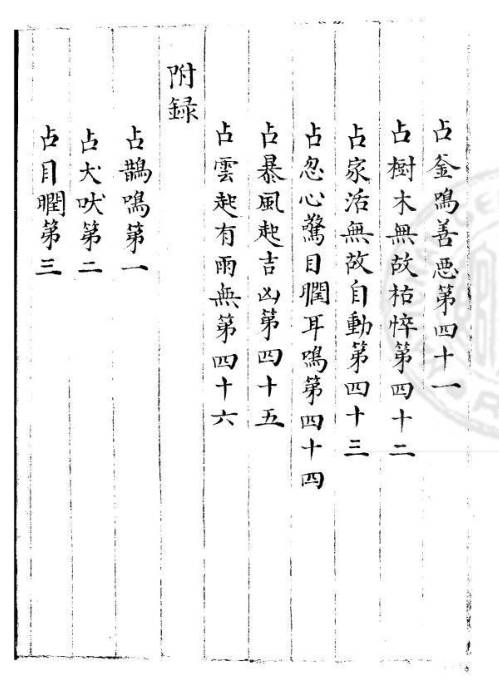 占釜鳴善惡第四十一
占樹木無故枯悴第四十二
占家活無故自動第四十三
占忽心驚目瞤耳鳴第四十四
占暴風起吉凶第四十五
占雲起有雨無第四十六
附録
占鵲鳴第一
占犬吠第二
占目瞤第三